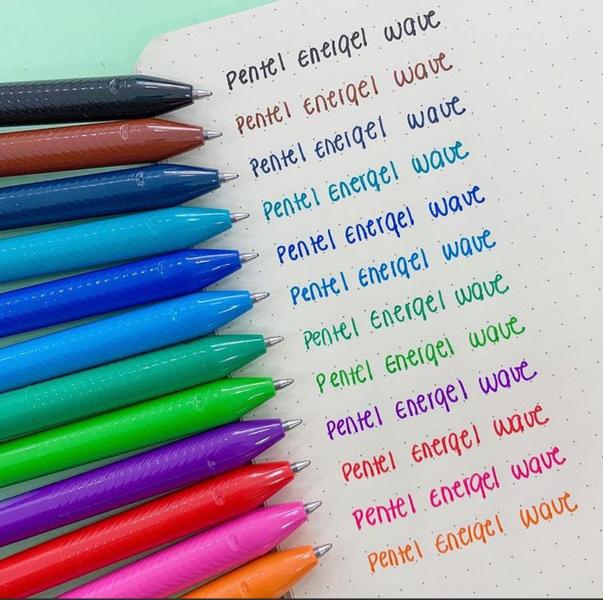 Pentel Energel wave
Pentel Energel wave
Pentel Energel wave
Pentel Energel wave
Pentel Energel wave
Pentel Energel wave
Pentel Energel wave
Pentel Energel wave
Pentel Energel wave
Pentel Energel wave
Pentel Energel wave
Pentel Energel wave